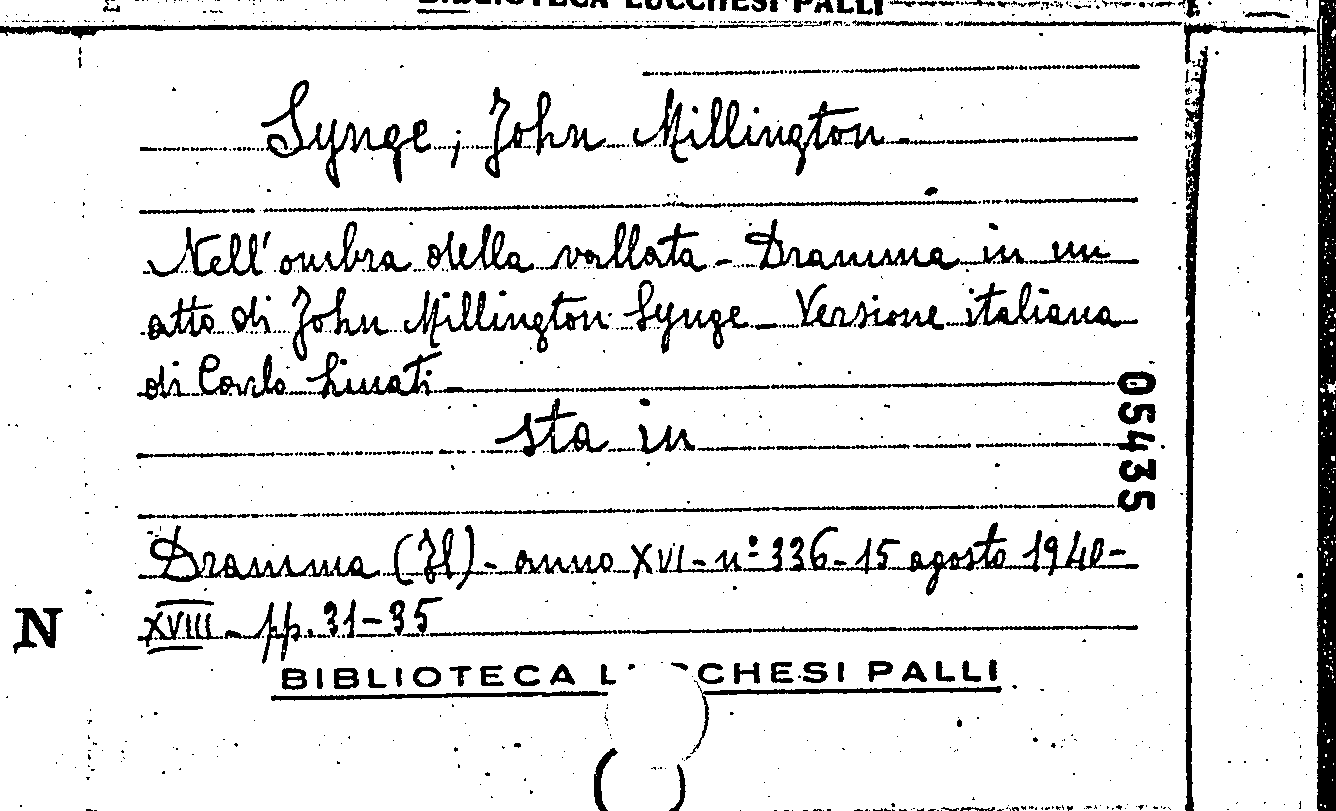 BIBLIOTECA LUCCHESI PALLI
Synge, John Millington
Nell'ombra della vallata - Dramma in un
atto di John Millington Synge - Versione italiana
di Carlo Linati -
sta in
05435
Dramma (Il) - anno XVI - nº 336 - 15 agosto 1940 -
XVIII - pp. 31-35
N
BIBLIOTECA LUCCHESI PALLI